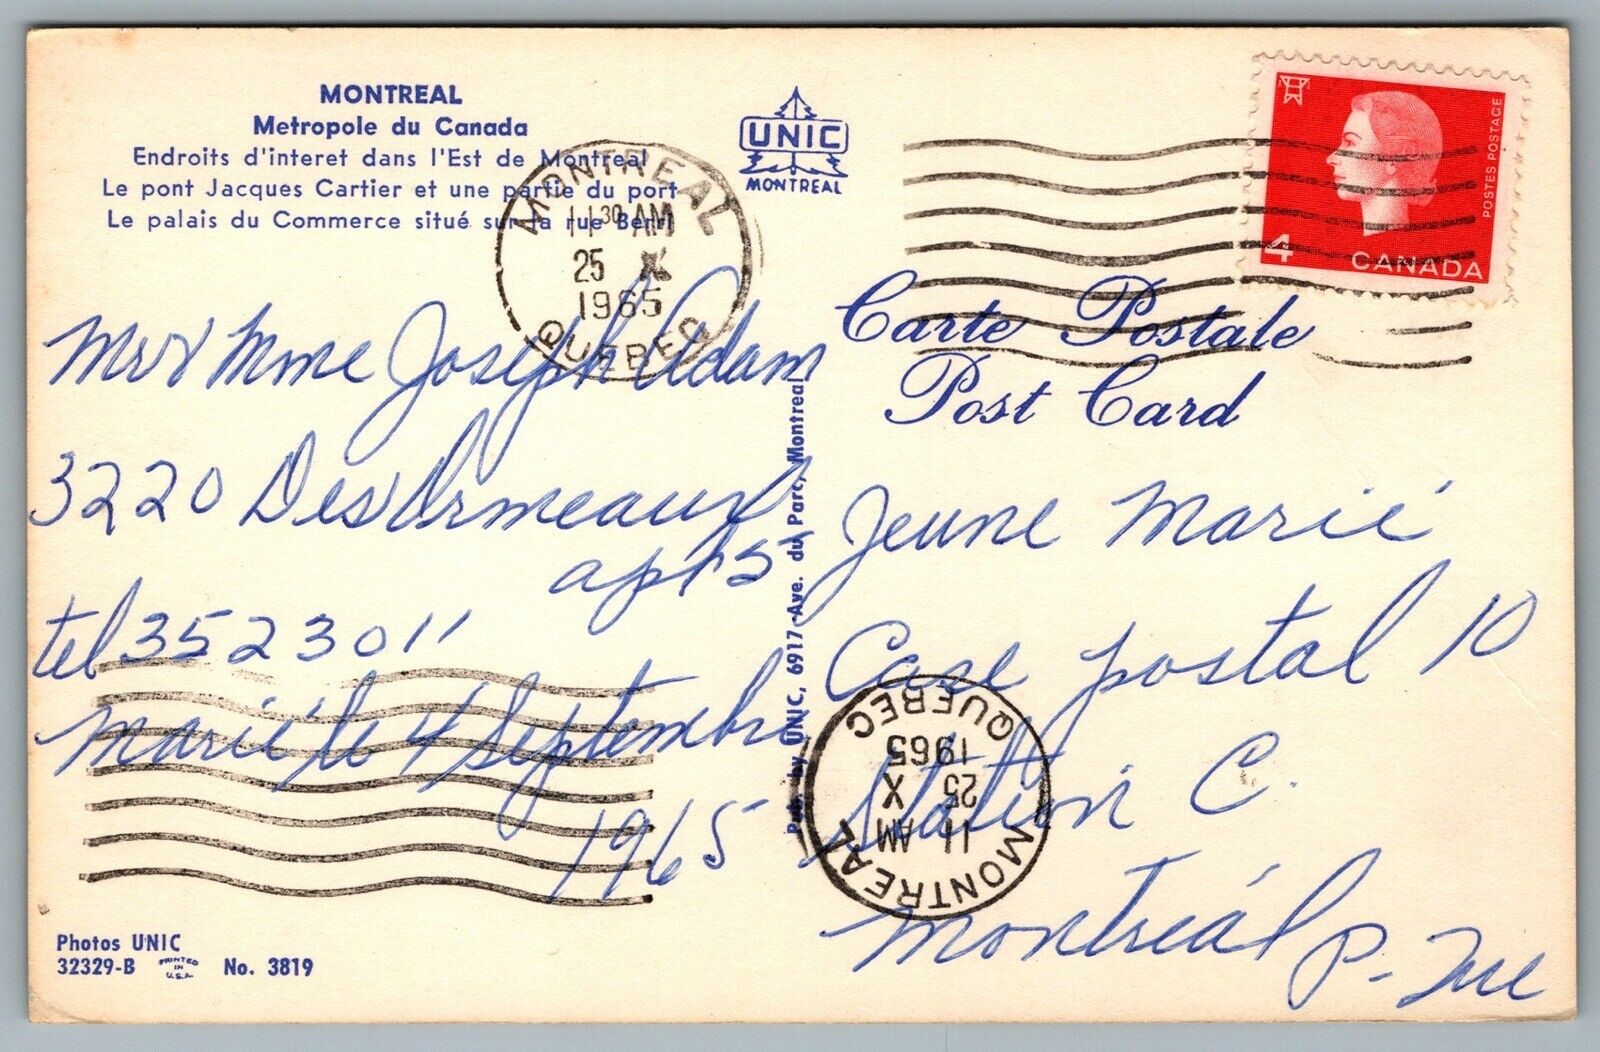 MONTREAL
Metropole du Canada
Endroits d'interet dans l'Est de Montreal
Le pont Jacques Cartier et une partie du port
Le palais du Commerce situé sur la rue Berri
UNIC
MONTREAL
4
POSTES POSTAGE
4
CANADA
MONTREAL
11 30 AM
25 X
1965
QUEBEC
Carte Postale
Post Card
Mr & Mme Joseph Adam
3220 Des Ormeaux
apt 5
tel 3523011
Marié le 4 Septembre
1965
Pub. by UNIC, 6917 Ave. du Parc, Montreal
Jeune Marié
Case postal 10
Station C.
Montréal P. Que
MONTREAL
11 AM
25 X
1965
QUEBEC
Photos UNIC
32329-B PRINTED IN U.S.A. No. 3819